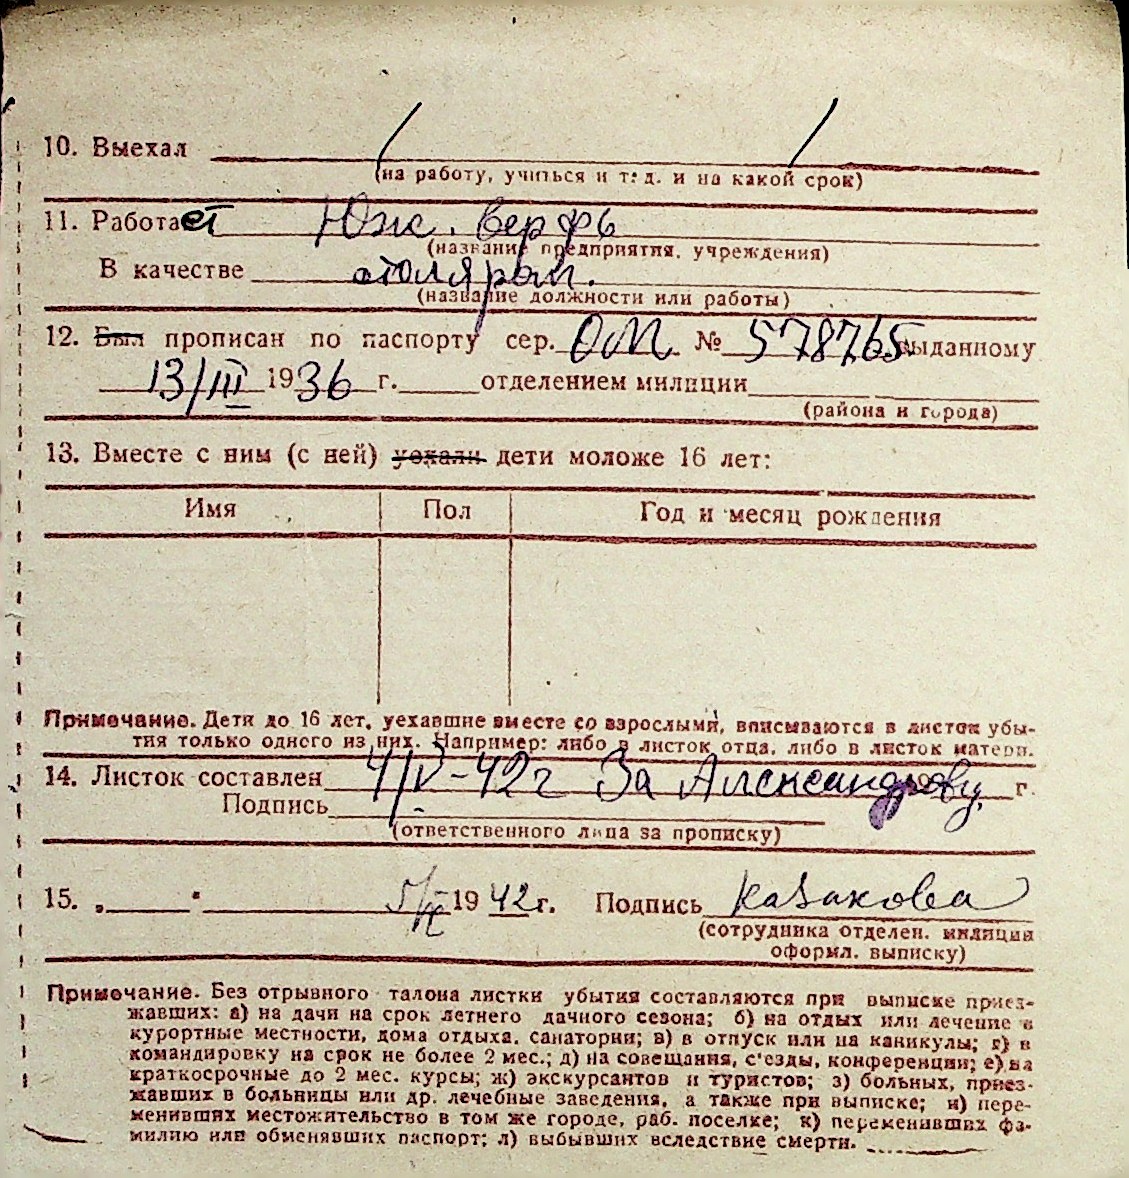 10. Выехал
(на работу, учиться и т. д. и на какой срок)
11. Работает Юж. верфь
(название предприятия, учреждения)
В качестве столяром.
(название должности или работы)
12. Был прописан по паспорту сер. ОМ № 578765 выданному
13/III 1936 г. отделением милиции
(района и города)
13. Вместе с ним (с ней) уехали дети моложе 16 лет:
Имя Пол Год и месяц рождения
Примечание. Дети до 16 лет, уехавшие вместе со взрослыми, вписываются в листок убы-
тия только одного из них. Например: либо в листок отца, либо в листок матери.
14. Листок составлен 4/V-42г За Александрову г.
Подпись
(ответственного лица за прописку)
15. „ “ 5/V 1942г. Подпись Казакова
(сотрудника отделен. милиции
оформл. выписку)
Примечание. Без отрывного талона листки убытия составляются при выписке приез-
жавших: а) на дачи на срок летнего дачного сезона; б) на отдых или лечение в
курортные местности, дома отдыха, санатории; в) в отпуск или на каникулы; г) в
командировку на срок не более 2 мес.; д) на совещания, с'езды, конференции; е) на
краткосрочные до 2 мес. курсы; ж) экскурсантов и туристов; з) больных, приез-
жавших в больницы или др. лечебные заведения, а также при выписке; и) пере-
менивших местожительство в том же городе, раб. поселке; к) переменивших фа-
милию или обменявших паспорт; л) выбывших вследствие смерти.